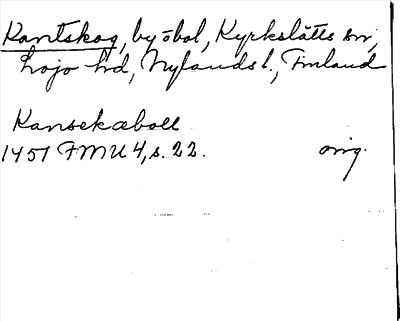 Kantskog, by o bol, Kyrkslätts sn,
Lojo hd, Nylands l., Finland
Kansekæboll
1451 FMU 4, s. 22. orig.